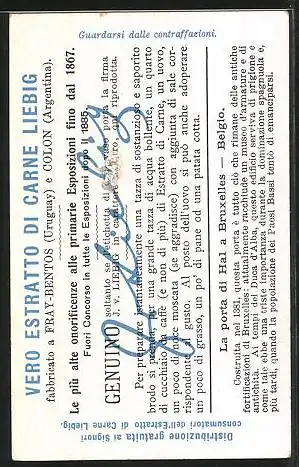 Guardarsi dalle contraffazioni.
VERO ESTRATTO DI CARNE LIEBIG
fabbricato a FRAY-BENTOS (Uruguay) e COLON (Argentina).
Le più alte onorificenze alle primarie Esposizioni fino dal 1867.
Fuori Concorso in tutte le Esposizioni dopo il 1885.
GENUINO soltanto se l'etichetta di ogni vaso porta la firma
J. v. LIEBIG in qui riprodotta.
Per preparare istantaneamente una tazza di sostanzioso e saporito
brodo si prenda, per una grande tazza di acqua bollente, un quarto
di cucchiaio da caffè (e non di più) di Estratto di Carne, un uovo,
un poco di noce moscata (se aggradisce) con aggiunta di sale cor-
rispondente al gusto. Al posto dell'uovo si può anche adoperare
un poco di grasso, un po' di pane od una patata cotta.
La porta di Hal a Bruxelles — Belgio.
Costruita nel 1381, questa porta è tutto ciò che rimane delle antiche
fortificazioni di Bruxelles: attualmente racchiude un museo d'armature e di
antichità. Ai tempi del Duca d'Alba, questo edificio serviva di prigione e
come tale ebbe una triste importanza durante la dominazione spagnuola e,
più tardi, quando la popolazione dei Paesi Bassi tentò di emanciparsi.
Distribuzione gratuita ai Signori
consumatori dell'Estratto di Carne Liebig.